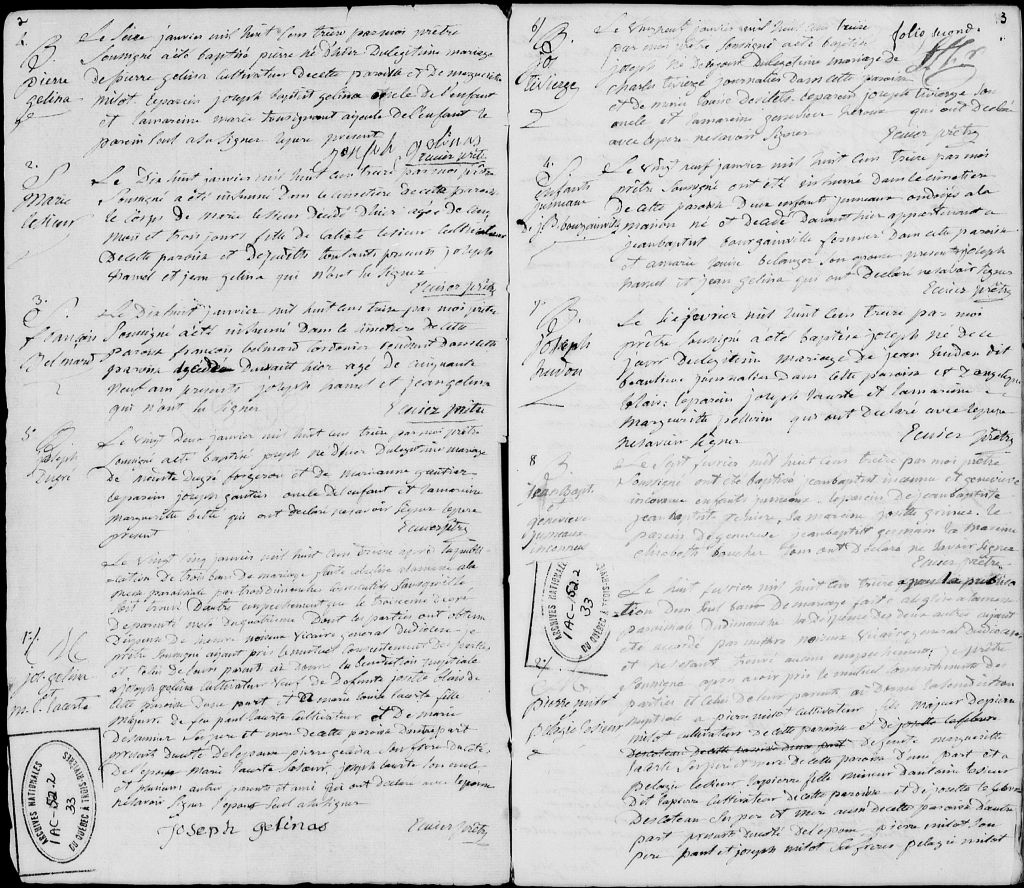 2
1.
B.
pierre
gelina
Le seize janvier mil huit cens treize par moi prêtre
soussigné a été baptisé pierre né d'hier du legitime mariage
de pierre gelina cultivateur de cette paroisse et de marguerite
milot. le parein joseph baptist gelina oncle de l'enfant
et la mareine marie tousignant ayeule de l'enfant le
parein seul a su signer le pere present
joseph gelinas
Ecuier prêtre
2.
S.
Marie
Lesieur
Le Dix huit janvier mil huit cens treize par moi prêtre
soussigné a été inhumé dans le cimetiere de cette paroisse
le corps de marie lesieur décédé d'hier agée de cinq
mois et trois jours fille de calixte lesieur cultivateur
de cette paroisse et de judith toutants presents joseph
hamel et jean gelina qui n'ont su signer
Ecuier prêtre
3.
S.
françois
Belmard
Le Dix huit janvier mil huit cens treize par moi prêtre
soussigné a été inhumé dans le cimetiere de cette
paroisse françois belmard cordonier residant dans cette
paroisse décédé d'avant hier agé de cinquante
neuf ans presents joseph hamel et jean gelina
qui n'ont su signer
Ecuier prêtre
5
B.
joseph
Dugré
Le vingt deux janvier mil huit cens treize par moi prêtre
soussigné a été baptisé joseph né d'hier du legitime mariage
de dugré forgeron et de marianne gautier
le parein joseph gautier oncle de l'enfant et la mareine
marguerite belle qui ont declaré ne savoir signer le pere
present
Ecuier prêtre
1er/.
M
jos. gelina
et
m. l. lacerte
Le vingt cinq janvier mil huit cens treize après la publi
cation de trois bans de mariage faite
messe paroissiale par trois dimanches
soit trouvé d'autre empechement que le troisieme degré
de parenté melé du quatrieme dont les parties ont obtenu
dispense de henri noiseux vicaire general du diocese je
prêtre soussigné ayant pris le mutuel consentement des parties
et celui de leurs parents ai donné la benediction nuptiale
a joseph gelina cultivateur veuf de defunte josette blais de
cette paroisse d'une part et de marie louise lacerte fille
majeure de feu paul lacerte cultivateur et de marie
desaunier ses pere et mere de cette paroisse d'autre part
present du coté de l'epoux pierre gelina son frere du coté
de l'epouse marie lacerte sa soeur, joseph lacerte son oncle
et plusieurs autres parents et amis qui ont declaré avec l'epouse
ne savoir signer l'epoux seul a su signer
Joseph Gelinas
Ecuier prêtre
ARCHIVES NATIONALES
1AC-52.2
33
DU QUÉBEC À TROIS-RIVIÈRES
3
folio second.
6/
B.
Jo
tivierge
Le vingt huit janvier mil huit cens treize
par moi prêtre soussigné a été baptisé
joseph né de ce jour du legitime mariage de
charles tivierge journalier dans cette paroisse
et de marie louise desilets. le parein joseph tivierge son
oncle et la mareine genevieve heroux qui ont declaré
avec le pere ne savoir signer
Ecuier prêtre
4.
S
Enfants
jumeaux
de j. B. bourgainville
Le vingt neuf janvier mil huit cens treize par moi
prêtre soussigné ont été inhumé dans le cimetiere
de cette paroisse deux enfant jumeaux ondoyés a la
maison né et decedé d'avant hier appartenant a
jean baptist bourgainville fermier dans cette paroisse
et a marie louise belanger son epouse presents joseph
hamel et jean gelina qui ont declaré ne savoir signer
Ecuier prêtre
7
B.
joseph
hudon
Le six fevrier mil huit cens treize par moi
prêtre soussigné a été baptisé joseph né de ce
jour du legitime mariage de jean hudon dit
beaulieu journalier dans cette paroisse et d'angelique
blais; le parein joseph lacerte et la mareine
marguerite pellerin qui ont declaré avec le pere
ne savoir signer
Ecuier prêtre
8
B
jean Bapt.
et
genevieve
jumeaux
inconnus
Le sept fevrier mil huit cens treize par moi prêtre
soussigné ont été baptisé jean baptist inconnu et genevieve
inconnue enfants jumeaux le parein de jean baptiste
jean baptist la mareine josette grenier. le
parein de genevieve jean baptist germain la mareine
elisabeth boucher tous ont declaré ne savoir signer
Ecuier prêtre
2/.
M
pierre milot
et
pelagie Lesieur
Le huit fevrier mil huit cens treize apres la publica
tion d'un seul banc de mariage faite au prône de la messe
paroissiale du dimanche la dispense des deux autres ayant
été accordé par messire noiseux vicaire general du diocese
et ne s'etant trouvé aucun empechement, je prêtre
soussigné après avoir pris le mutuel consentement des
parties et celui de leurs parents ai donné la benediction
nuptiale a pierre milot cultivateur fils majeur de pierre
milot cultivateur de cette paroisse et de josette lefebvre
descoteau de cette paroisse d'une part de feue marguerite
lacerte ses pere et mere de cette paroisse d'une part et a
pelagie lesieur lapierre fille mineure d'antoine lesieur
dit lapierre cultivateur de cette paroisse et de josette lefebvre
descoteau ses pere et mere aussi de cette paroisse d'autre
part present du coté de l'epoux pierre milot son
pere paul et joseph milot ses freres pelagie milot
ARCHIVES NATIONALES
1AC-52.2
33
DU QUÉBEC À TROIS-RIVIÈRES